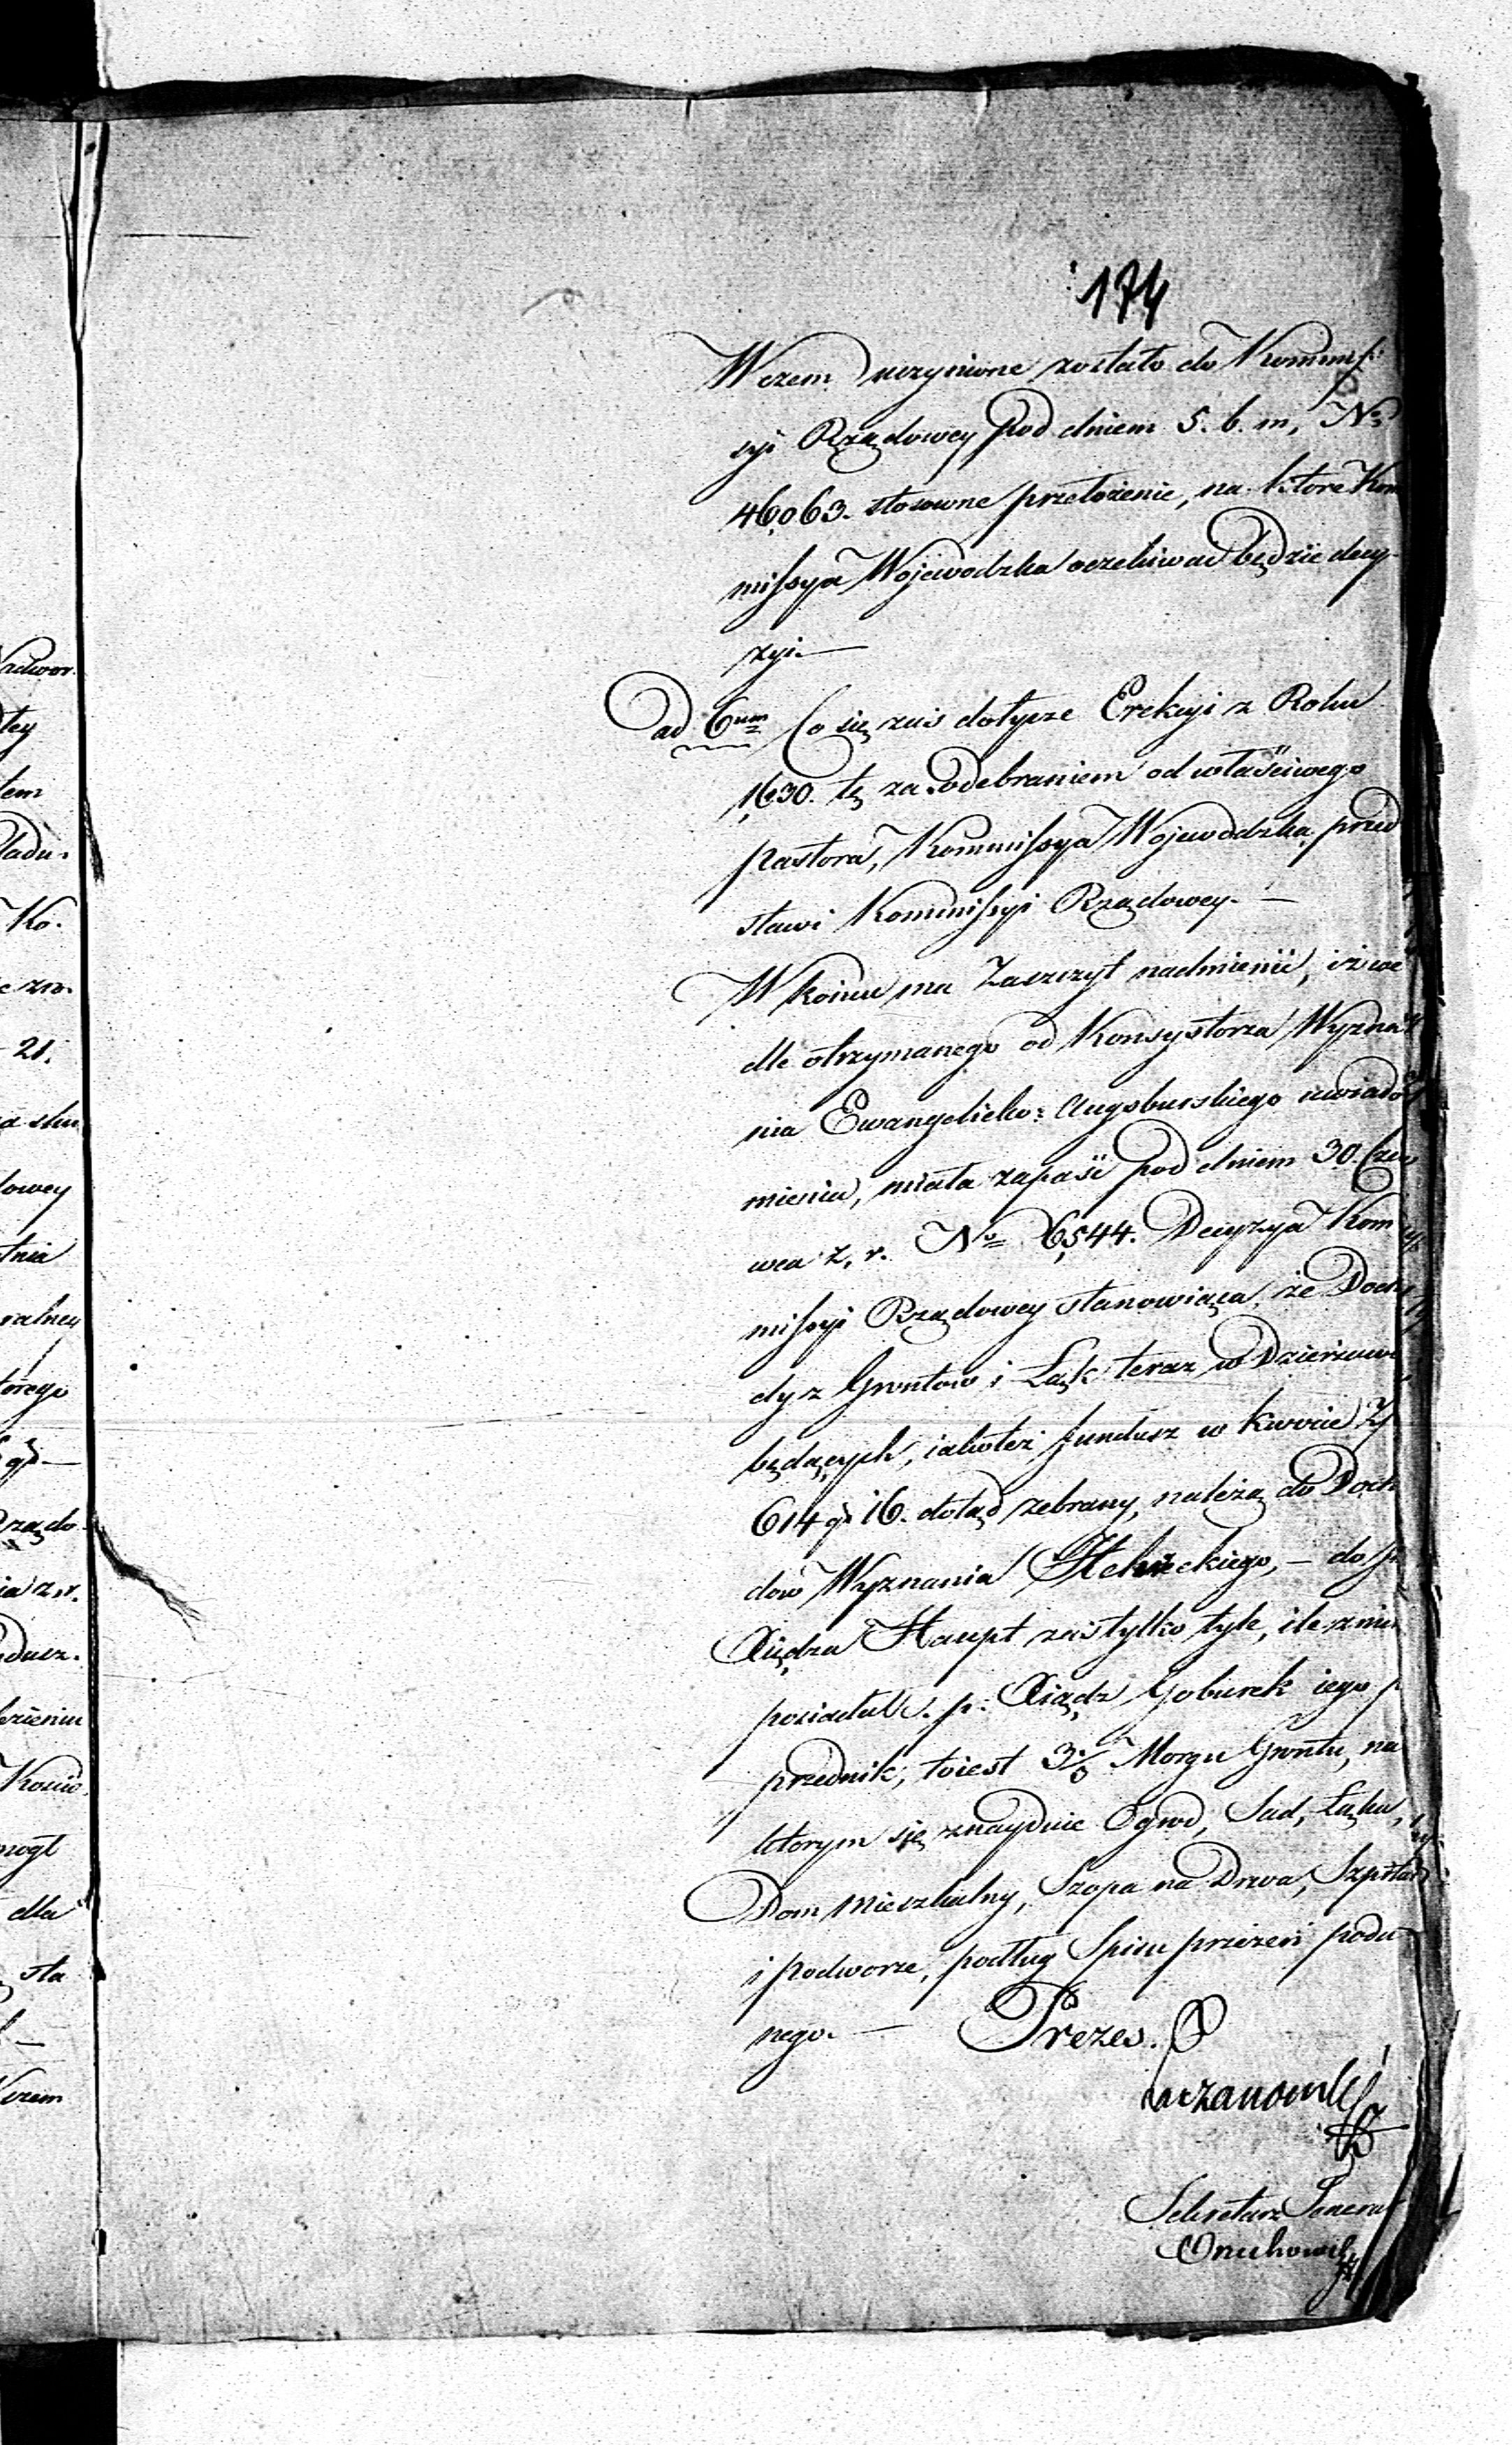 174
W czem uczynione zostało do Kommis
syi Rządowey pod dniem 5. b. m, No
46063. stosowne przełożenie, na które Kom
missya Wojewodzka oczekiwać będzie decy-
zyi.—
ad 6um Co się zaś dotycze Erekcyi z Roku
1630. tę za odebraniem od właściwego
Pastora, Kommissya Wojewodzka przed
stawi Kommissyi Rządowey. —
W końcu ma Zaszczyt nadmienić, iż we
dle otrzymanego od Konsystorza Wyzna
nia Ewangelicko: Augsburskiego uwiado
mienia, miała zapaść pod dniem 30. Czer
wca z. r. No 6544. Decyzya Kom
missyi Rządowey stanowiąca, że Docho
dy z Gruntow i Łąk teraz w Dzierzawie
będących, iakoteż fundusz w kwocie Zł
614 gr 16. dotąd zebrany, należą do Docho
dów Wyznania Helweckiego, — do
Xiędza Haupt zaś tylko tyle, ile z nich
posiadał ś. p. Xiądz Goburek iego p
przednik, to iest 3 Morgu Gruntu, na
ktorym się znayduie Ogrod, Sad, Łąka,
Dom Mieszkalny, Szopa na Drwa, Szpital
i Podworze, podług Spisu przezeń poda
nego. — Prezes.
Sekretarz General